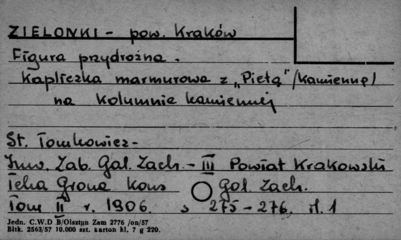 ZIELONKI - pow. Kraków
Figura przydrożna.
Kapliczka marmurowa z „Pietą" /kamienną/
na kolumnie kamiennej
St. Tomkowicz -
Inw. Zab. Gal. Zach. - III Powiat Krakowski
Teka Grona Kons Gal. Zach.
Tom II r. 1906. s 275-276, il. 1
Jedn. C.W.D B/Olsztyn Zam 2776 /on/57
Bitk. 2563/57 10.000 szt. karton kl. 7 g 220.